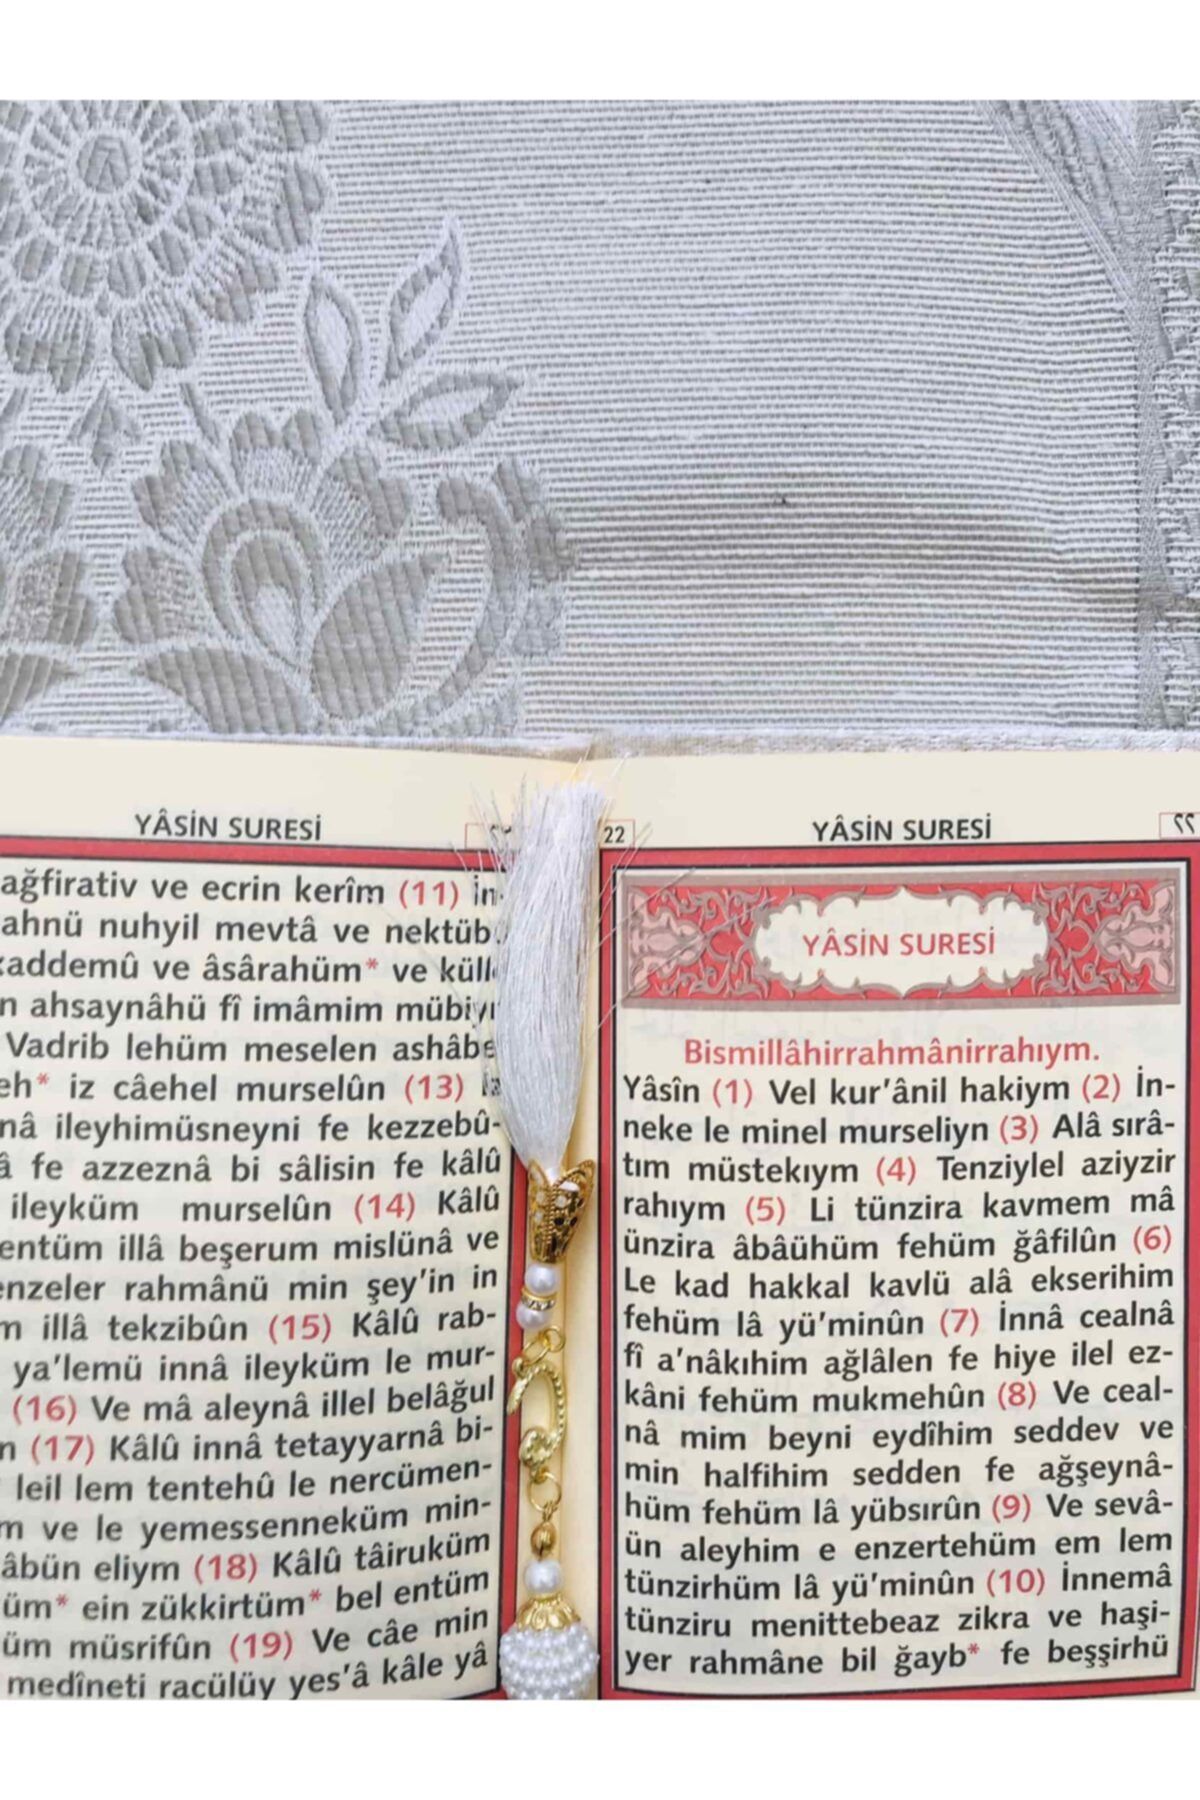 22
YÂSİN SURESİ
٢٢
YÂSİN SURESİ
Bismillâhirrahmânirrahıym.
Yâsîn (1) Vel kur’ânil hakiym (2) İn-
neke le minel murseliyn (3) Alâ sırâ-
tım müstekıym (4) Tenziylel aziyzir
rahıym (5) Li tünzira kavmem mâ
ünzira âbâühüm fehüm ğâfilûn (6)
Le kad hakkal kavlü alâ ekserihim
fehüm lâ yü’minûn (7) İnnâ cealnâ
fî a’nâkıhim ağlâlen fe hiye ilel ez-
kâni fehüm mukmehûn (8) Ve ceal-
nâ mim beyni eydîhim seddev ve
min halfihim sedden fe ağşeynâ-
hüm fehüm lâ yübsırûn (9) Ve sevâ-
ün aleyhim e enzertehüm em lem
tünzirhüm lâ yü’minûn (10) İnnemâ
tünziru menittebeaz zikra ve haşi-
yer rahmâne bil ğayb* fe beşşirhü
YÂSİN SURESİ
ağfirativ ve ecrin kerîm (11) İn-
ahnü nuhyil mevtâ ve nektüb
kaddemû ve âsârahüm* ve külle
n ahsaynâhü fî imâmim mübiyn
Vadrib lehüm meselen ashâbe
eh* iz câehel murselûn (13) İz
nâ ileyhimüsneyni fe kezzebû-
â fe azzeznâ bi sâlisin fe kâlû
ileyküm murselûn (14) Kâlû
entüm illâ beşerum mislünâ ve
enzeler rahmânü min şey’in in
m illâ tekzibûn (15) Kâlû rab-
ya’lemü innâ ileyküm le mur-
(16) Ve mâ aleynâ illel belâğul
n (17) Kâlû innâ tetayyarnâ bi-
leil lem tentehû le nercümen-
m ve le yemessenneküm min-
âbün eliym (18) Kâlû tâiruküm
üm* ein zükkirtüm* bel entüm
üm müsrifûn (19) Ve câe min
medîneti racülüy yes’â kâle yâ